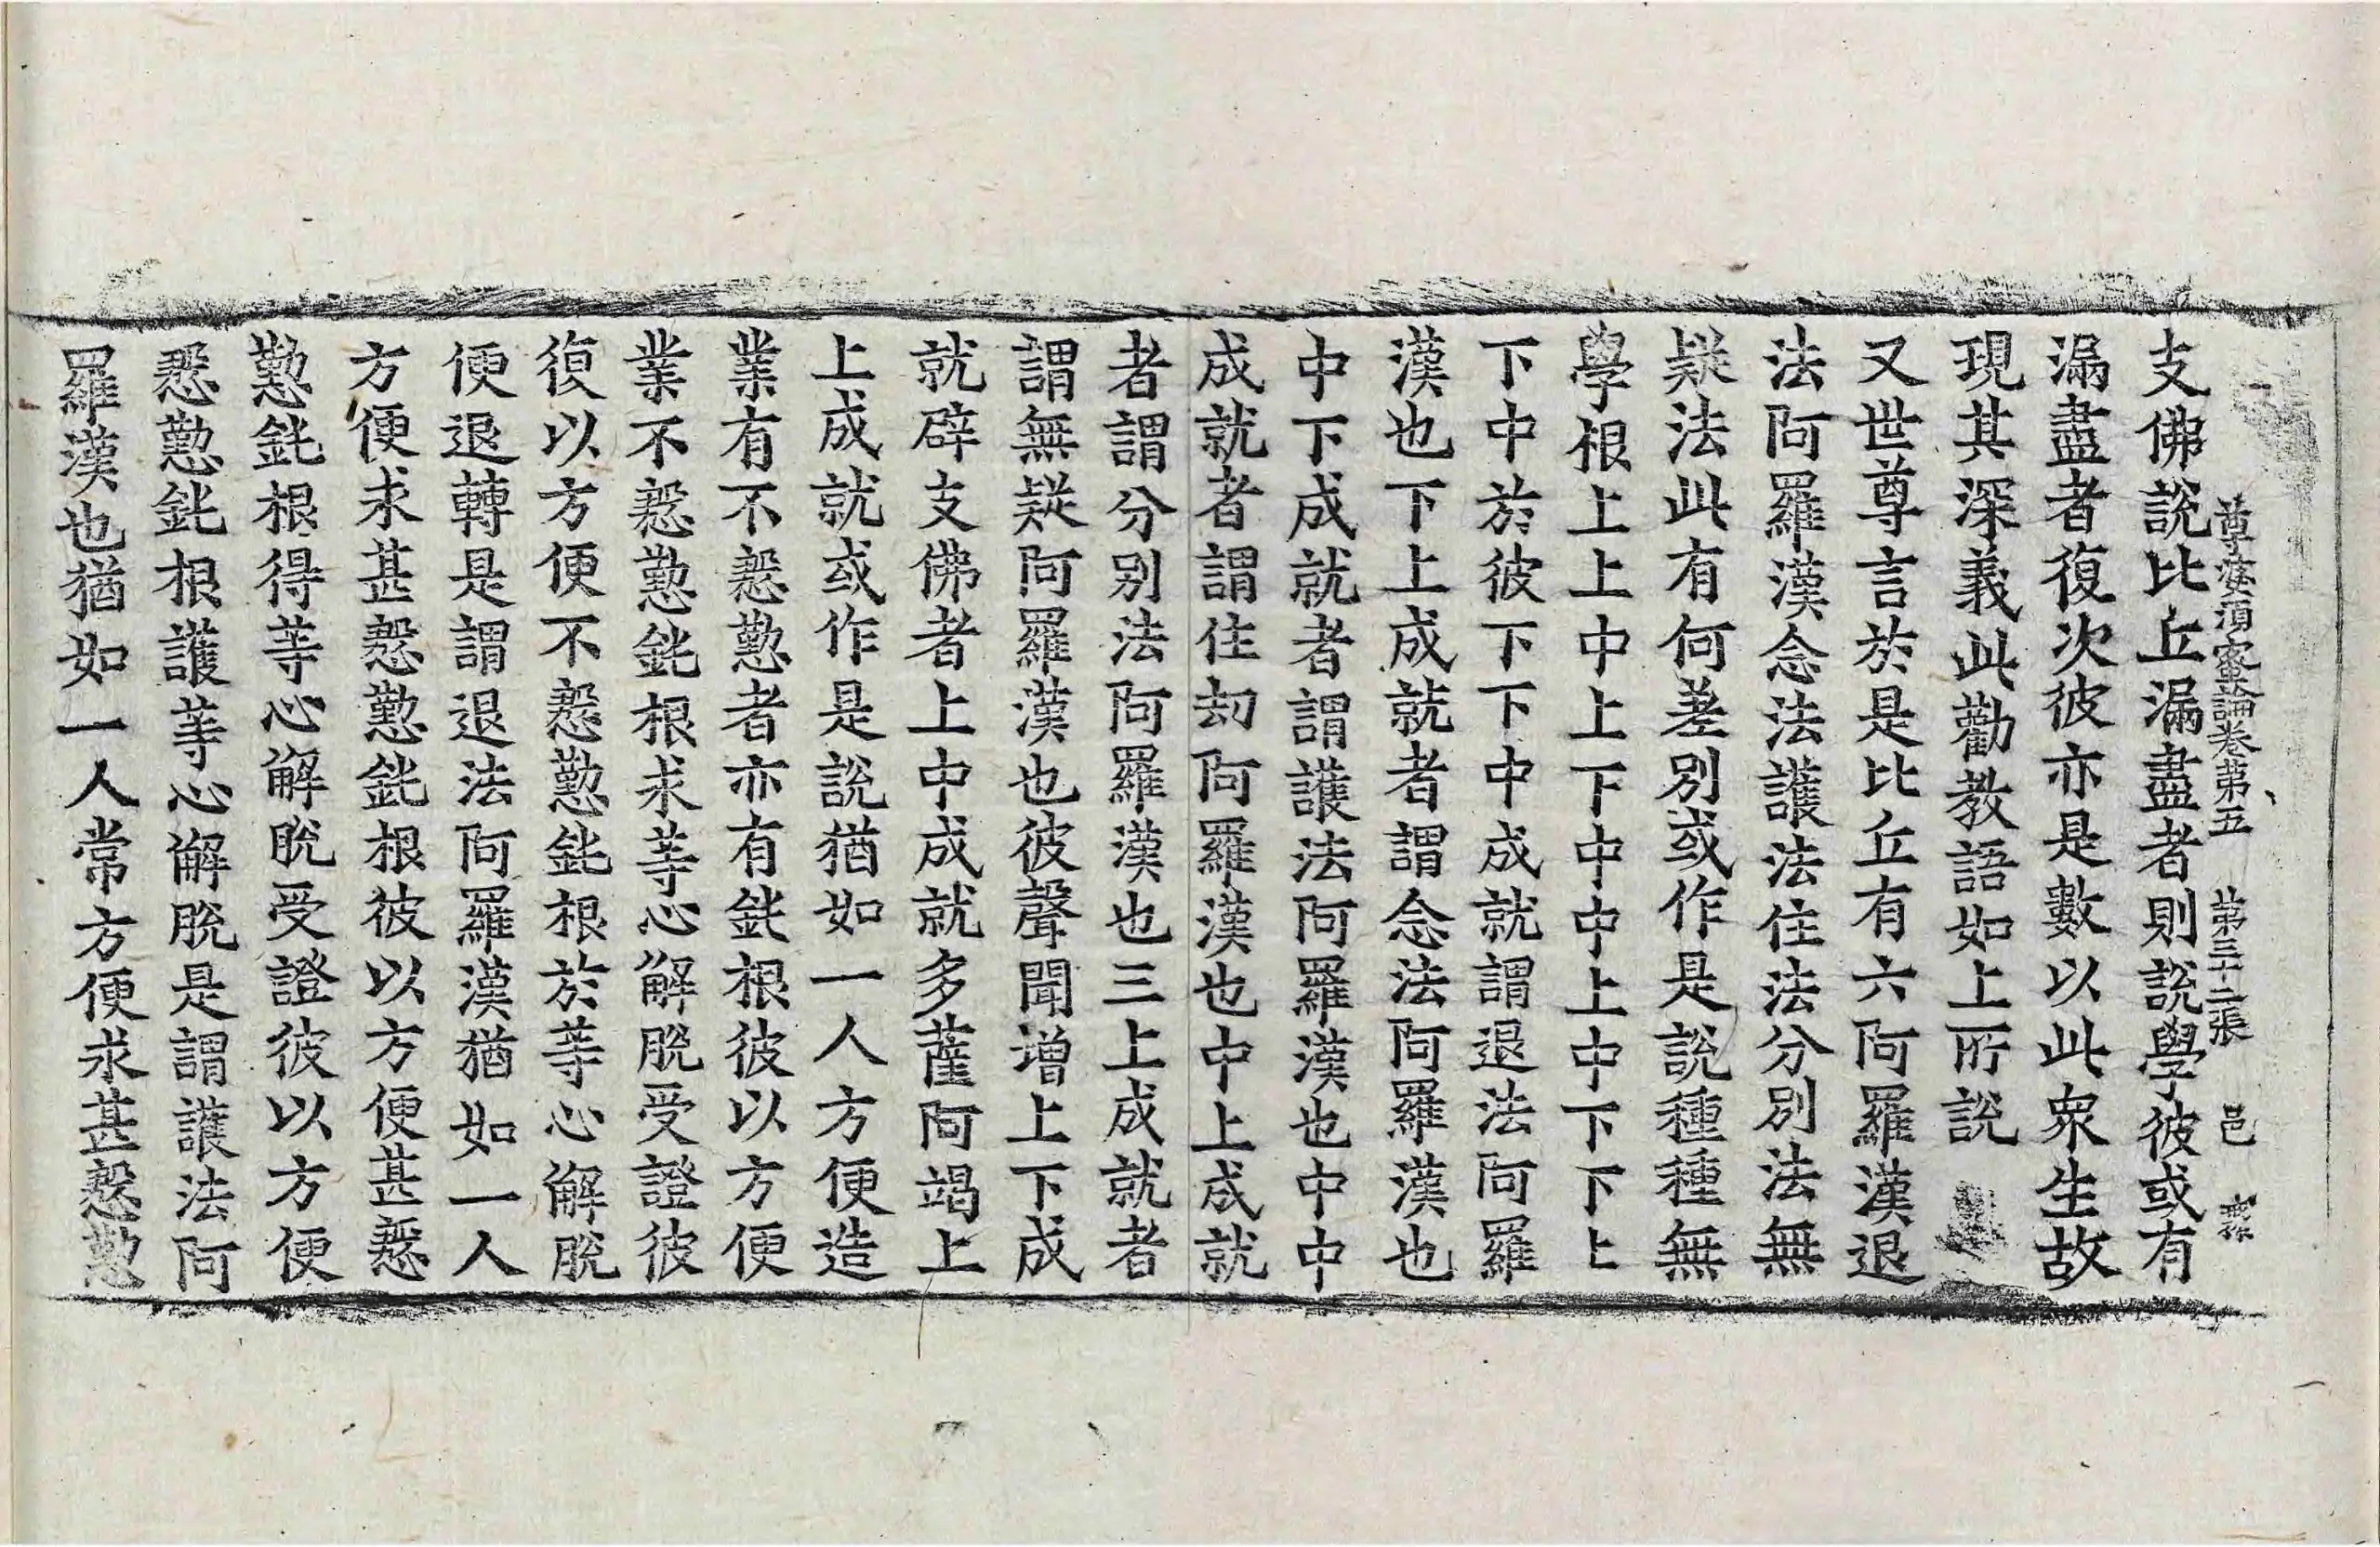 尊婆須蜜論卷第五 第三十二張 邑
支佛說比丘漏盡者則說學彼或有
漏盡者復次彼亦是數以此衆生故
現其深義此勸教語如上所說
又世尊言於是比丘有六阿羅漢退
法阿羅漢念法護法住法分別法無
疑法此有何差別或作是說種種無
學根上上中上下中中上中下下上
下中於彼下下中成就謂退法阿羅
漢也下上成就者謂念法阿羅漢也
中下成就者謂護法阿羅漢也中中
成就者謂住劫阿羅漢也中上成就
者謂分別法阿羅漢也三上成就者
謂無疑阿羅漢也彼聲聞增上下成
就辟支佛者上中成就多薩阿竭上
上成就或作是說猶如一人方便造
業有不慇懃者亦有鈍根彼以方便
業不慇懃鈍根求等心解脫受證彼
復以方便不慇懃鈍根於等心解脫
便退轉是謂退法阿羅漢猶如一人
方便求甚慇懃鈍根彼以方便甚慇
懃鈍根得等心解脫受證彼以方便
慇懃鈍根護等心解脫是謂護法阿
羅漢也猶如一人常方便求甚慇懃